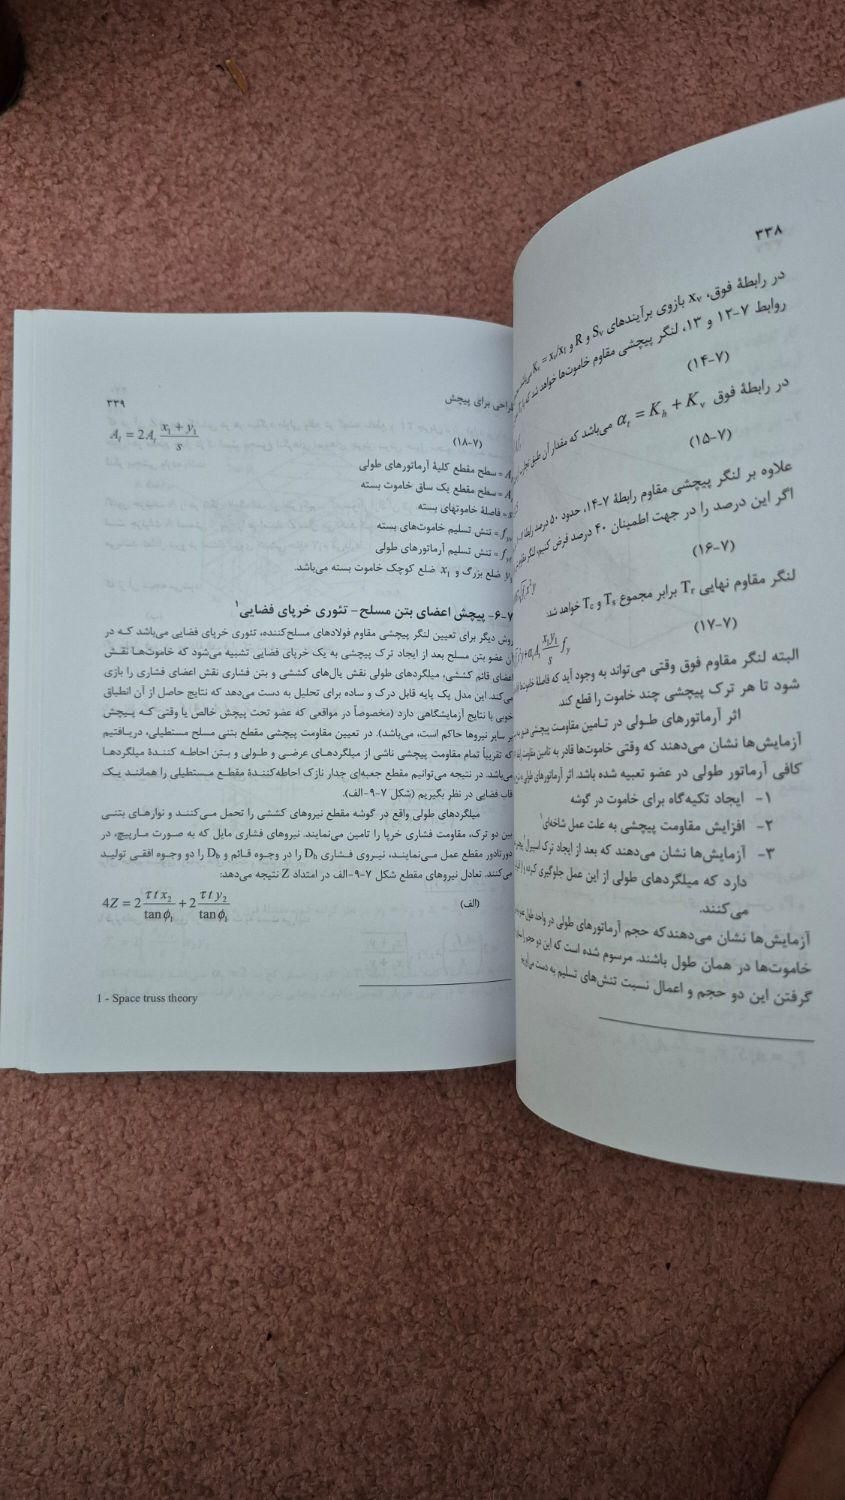 ۳۳۸
در رابطهٔ فوق، xᵥ بازوی برآیندهای Sᵥ و R و Kᵥ = xᵥ/x₁
روابط ۷-۱۲ و ۱۳، لنگر پیچشی مقاوم خاموت‌ها خواهد شد که
(۷-۱۴)
در رابطهٔ فوق αₜ = Kₕ + Kᵥ می‌باشد که مقدار آن طبق
(۷-۱۵)
علاوه بر لنگر پیچشی مقاوم رابطهٔ ۷-۱۴، حدود ۵۰ درصد رابطهٔ
اگر این درصد را در جهت اطمینان ۴۰ درصد فرض کنیم، لنگر مقاوم
(۷-۱۶)
لنگر مقاوم نهایی Tᵣ برابر مجموع Tₛ و T꜀ خواهد شد:
(۷-۱۷) x₁y₁/s f_y
البته لنگر مقاوم فوق وقتی می‌تواند به وجود آید که فاصلهٔ خاموت‌ها
شود تا هر ترک پیچشی چند خاموت را قطع کند.
اثر آرماتورهای طولی در تامین مقاومت پیچشی
آزمایش‌ها نشان می‌دهند که وقتی خاموت‌ها قادر به تامین مقاومت
کافی آرماتور طولی در عضو تعبیه شده باشد. اثر آرماتورهای طولی
۱- ایجاد تکیه‌گاه برای خاموت در گوشه
۲- افزایش مقاومت پیچشی به علت عمل شاخه‌ای۱
۳- آزمایش‌ها نشان می‌دهند که بعد از ایجاد ترک اسپیرال
دارد که میلگردهای طولی از این عمل جلوگیری کرده و
می‌کنند.
آزمایش‌ها نشان می‌دهندکه حجم آرماتورهای طولی در واحد طول
خاموت‌ها در همان طول باشند. مرسوم شده است که این دو حجم را
گرفتن این دو حجم و اعمال نسبت تنش‌های تسلیم به دست می‌آوریم:
طراحی برای پیچش ۳۳۹
(۷-۱۸) Aₗ = 2Aₜ (x₁ + y₁)/s
= سطح مقطع کلیهٔ آرماتورهای طولی
Aₜ = سطح مقطع یک ساق خاموت بسته
s = فاصلهٔ خاموتهای بسته
= تنش تسلیم خاموت‌های بسته
= تنش تسلیم آرماتورهای طولی
y₁ ضلع بزرگ و x₁ ضلع کوچک خاموت بسته می‌باشد.
۷-۶- پیچش اعضای بتن مسلح- تئوری خرپای فضایی۱
روش دیگر برای تعیین لنگر پیچشی مقاوم فولادهای مسلح‌کننده، تئوری خرپای فضایی می‌باشد که در
آن عضو بتن مسلح بعد از ایجاد ترک پیچشی به یک خرپای فضایی تشبیه می‌شود که خاموت‌ها نقش
اعضای قائم کششی، میلگردهای طولی نقش یال‌های کششی و بتن فشاری نقش اعضای فشاری را بازی
می‌کند. این مدل یک پایه قابل درک و ساده برای تحلیل به دست می‌دهد که نتایج حاصل از آن انطباق
خوبی با نتایج آزمایشگاهی دارد (مخصوصاً در مواقعی که عضو تحت پیچش خالص یا وقتی که پیچش
بر سایر نیروها حاکم است، می‌باشد). در تعیین مقاومت پیچشی مقطع بتنی مسلح مستطیلی، دریافتیم
که تقریباً تمام مقاومت پیچشی ناشی از میلگردهای عرضی و طولی و بتن احاطه کنندهٔ میلگردها
می‌باشد. در نتیجه می‌توانیم مقطع جعبه‌ای جدار نازک احاطه‌کنندهٔ مقطع مستطیلی را همانند یک
قاب فضایی در نظر بگیریم (شکل ۷-۹-الف).
میلگردهای طولی واقع در گوشه مقطع نیروهای کششی را تحمل می‌کنند و نوارهای بتنی
بین دو ترک، مقاومت فشاری خرپا را تامین می‌نمایند. نیروهای فشاری مایل که به صورت مارپیچ، در
دورتادور مقطع عمل می‌نمایند، نیروی فشاری Dₕ را در وجوه قائم و D_b را دو وجوه افقی تولید
می‌کنند. تعادل نیروهای مقطع شکل ۷-۹-الف در امتداد Z نتیجه می‌دهد:
(الف) 4Z = 2 (τ t x₂)/(tan φₜ) + 2 (τ t y₂)/(tan φₜ)
1 - Space truss theory